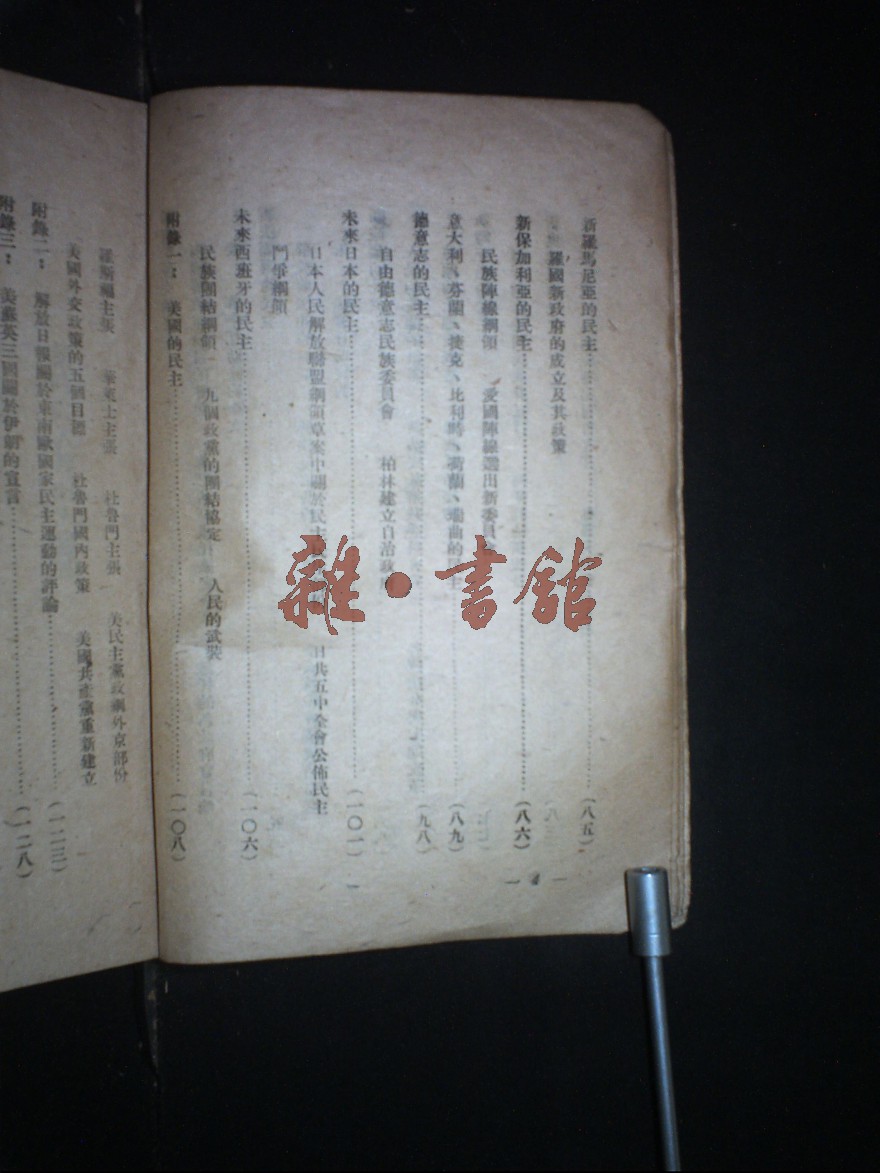 新羅馬尼亞的民主……(八五)
羅國新政府的成立及其政策
新保加利亞的民主……(八六)
民族陣線綱領 愛國陣線選出新委員
意大利、芬蘭、捷克、比利時、荷蘭、瑞典的民……(八九)
德意志的民主……(九八)
自由德意志民族委員會 柏林建立自治政
未來日本的民主……(一〇一)
日本人民解放聯盟綱領草案中關於民主 日共五中全會公佈民主
鬥爭綱領
未來西班牙的民主……(一〇六)
民族團結綱領 九個政黨的團結協定 人民的武裝
附錄一:美國的民主……(一〇八)
羅斯福主張 華萊士主張 杜魯門主張 美民主黨政綱外京部份
美國外交政策的五個目標 杜魯門國內政策 美國共產黨重新建立
附錄二:解放日報關於東南歐國家民主運動的評論……(一二三)
附錄三:美蘇英三國關於伊朗的宣言……(一二八)
雜·書館